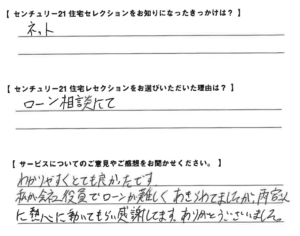 【 センチュリー21 住宅セレクションをお知りになったきっかけは？ 】
ネット
【 センチュリー21 住宅セレクションをお選びいただいた理由は？ 】
ローン相談にて
【 サービスについてのご意見やご感想をお聞かせください。 】
わかりやすくとても良かったです。
私が会社役員でローンが難しくあきらめてましたが、両宮さん
に熱心に動いてもらい感謝してます。ありがとうございました。